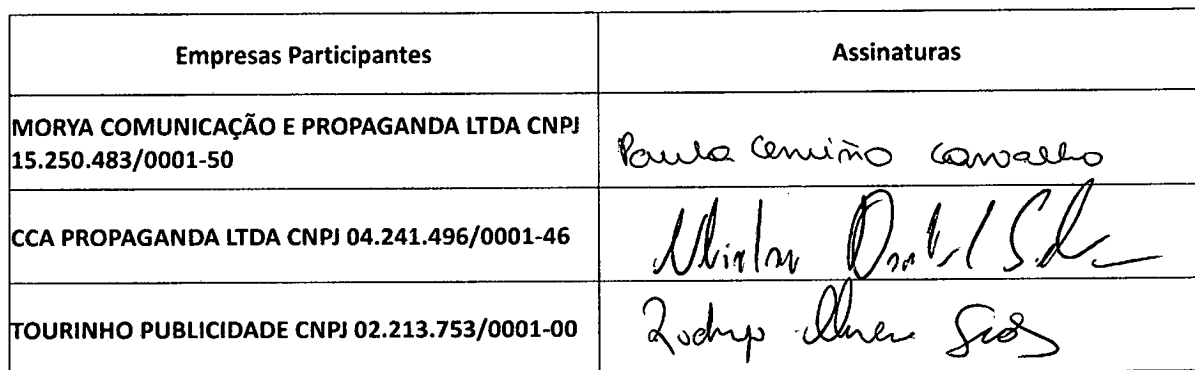 Empresas Participantes
Assinaturas
MORYA COMUNICAÇÃO E PROPAGANDA LTDA CNPJ
15.250.483/0001-50
Paula Cerviño Carvalho
CCA PROPAGANDA LTDA CNPJ 04.241.496/0001-46
TOURINHO PUBLICIDADE CNPJ 02.213.753/0001-00
Rodrigo